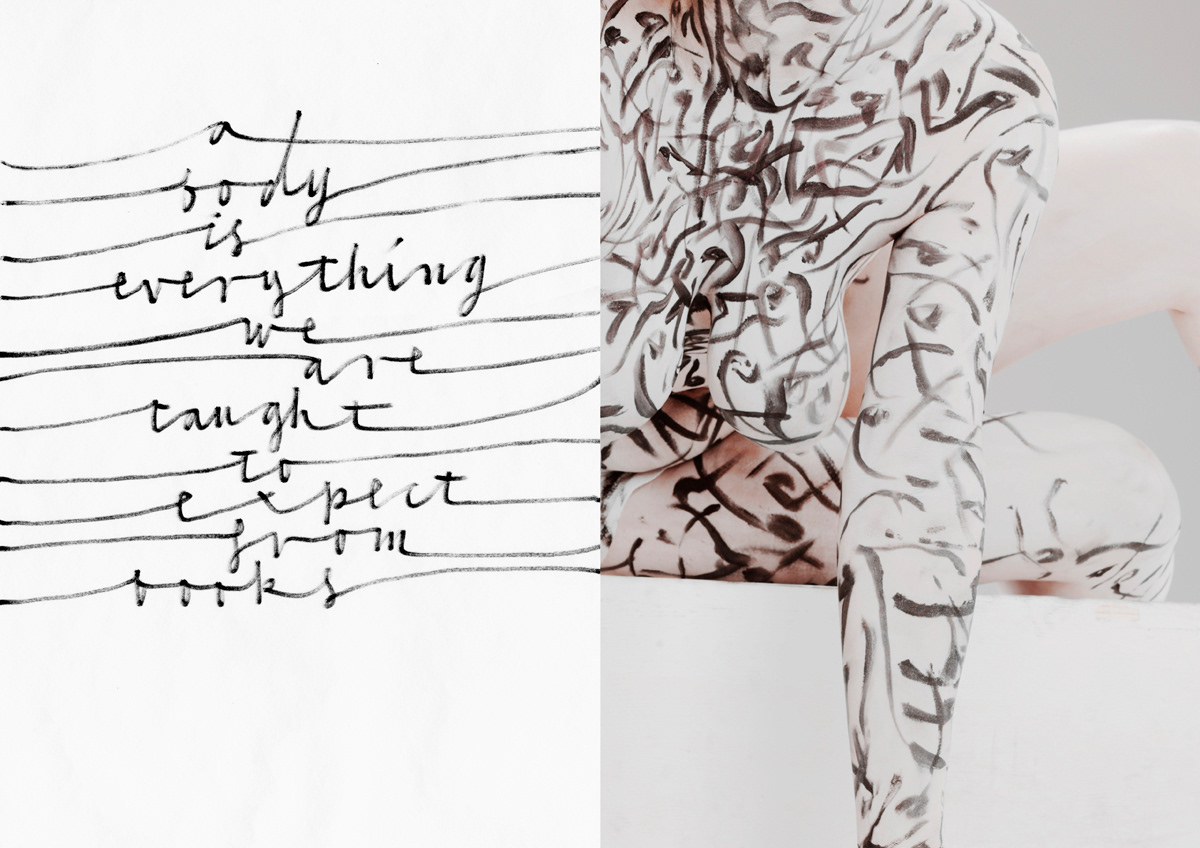 a
body
is
everything
we
are
taught
to
expect
from
books